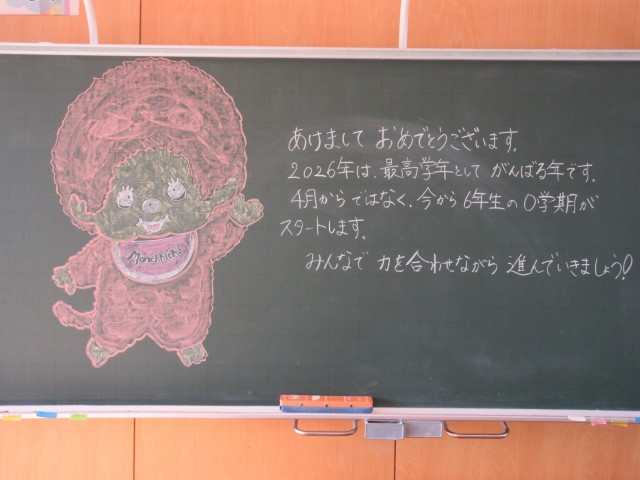 あけまして おめでとうございます。
2026年は、最高学年として がんばる年です。
4月から ではなく、今から 6年生の 0学期が
スタートします。
みんなで 力を合わせながら 進んでいきましょう!
Monchhichi